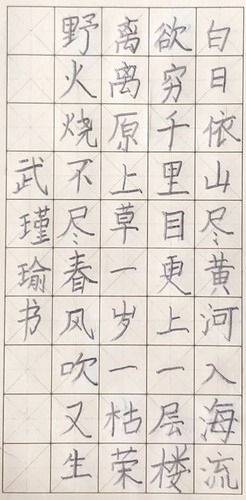 白日依山尽黄河入海流
欲穷千里目更上一层楼
离离原上草一岁一枯荣
野火烧不尽春风吹又生
武瑾瑜书